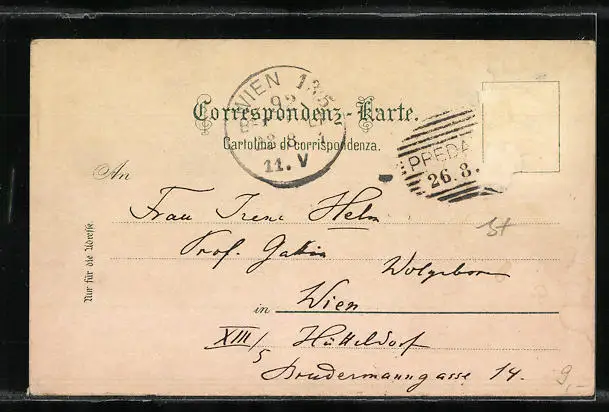 WIEN 13/5
11. V
Correspondenz-Karte.
Cartolina di corrispondenza.
PREDA
26.8.
An
Frau Irene Helm
Prof. Gattin
Wolgeborn
in Wien
XIII/5 Hütteldorf
Brudermanngasse 14.
Nur für die Adresse.
9,-